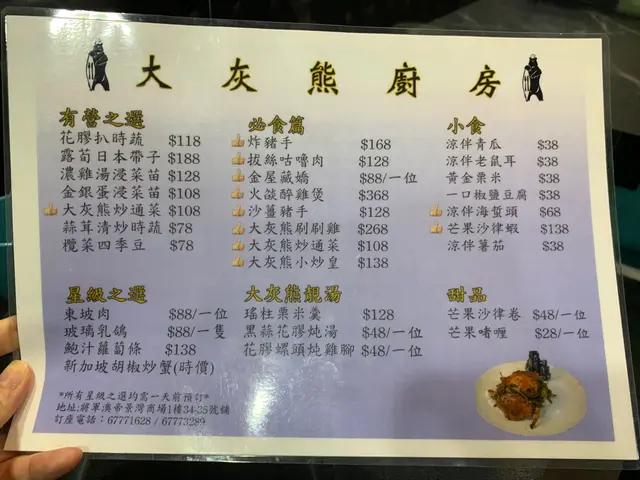 大灰熊廚房
有營之選
花膠扒時蔬 $118
露荀日本帶子 $188
濃雞湯浸菜苗 $128
金銀蛋浸菜苗 $108
大灰熊炒通菜 $108
蒜茸清炒時蔬 $78
欖菜四季豆 $78
必食篇
炸豬手 $168
拔絲咕嚕肉 $128
金屋藏嬌 $88/一位
火燄醉雞煲 $368
沙薑豬手 $128
大灰熊刷刷雞 $268
大灰熊炒通菜 $108
大灰熊小炒皇 $138
小食
涼伴青瓜 $38
涼伴老鼠耳 $38
黃金粟米 $38
一口椒鹽豆腐 $38
涼伴海蜇頭 $68
芒果沙律蝦 $138
涼伴薯茄 $38
星級之選
東坡肉 $88/一位
玻璃乳鴿 $88/一隻
鮑汁蘿蔔條 $138
新加坡胡椒炒蟹(時價)
大灰熊靚湯
瑤柱粟米羹 $128
黑蒜花膠炖湯 $48/一位
花膠螺頭炖雞腳 $48/一位
甜品
芒果沙律卷 $48/一位
芒果啫喱 $28/一位
*所有星級之選均需一天前預訂*
地址:將軍澳帝景灣商場1樓34-35號舖
訂座電話：67771628 / 67773289